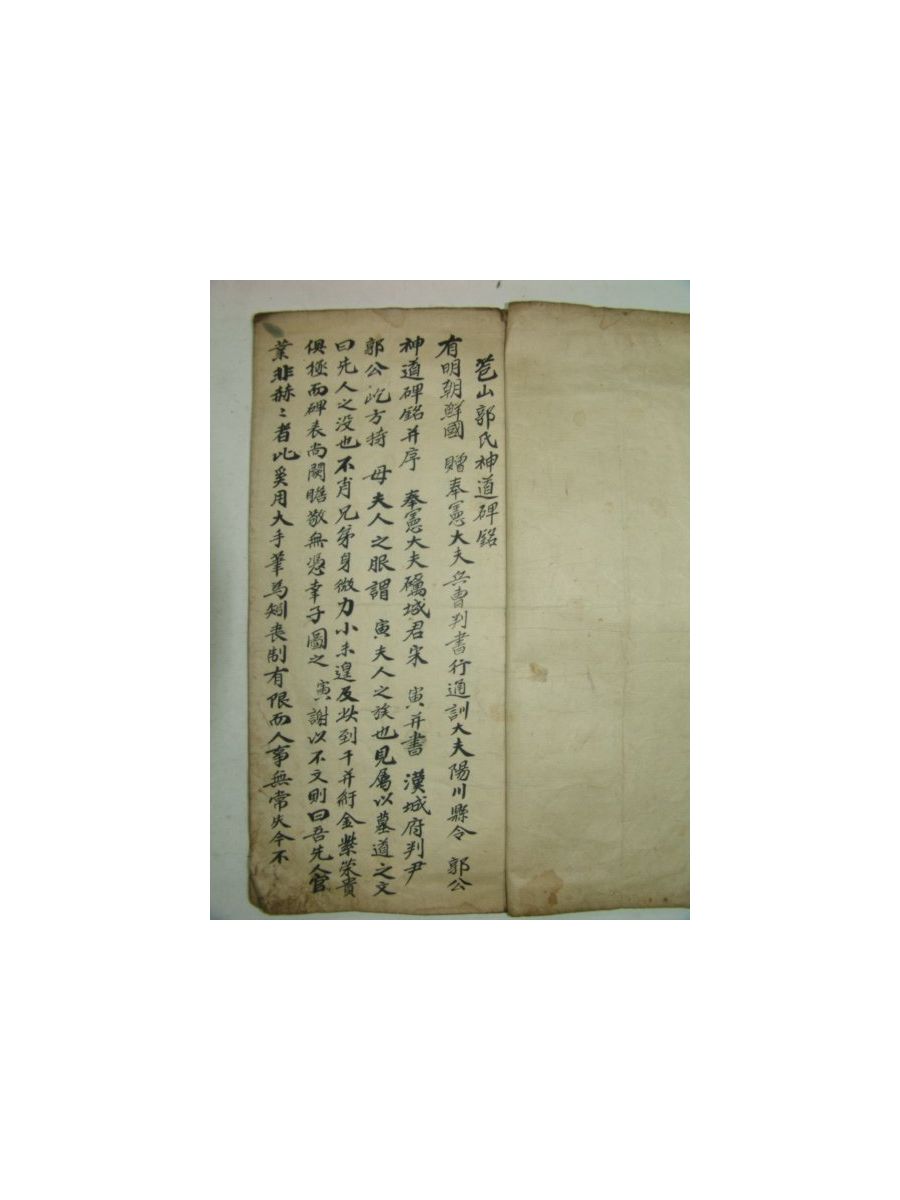 苞山郭氏神道碑銘
有明朝鮮國 贈奉憲大夫兵曹判書行通訓大夫陽川縣令 郭公
神道碑銘并序 奉憲大夫礪城君宋 寅并書 漢城府判尹
郭公屹方持 母夫人之服謂 寅夫人之族也見屬以墓道之文
曰先人之没也不肖兄弟身微力小未遑及此到于并紆金紫榮貴
俱極而碑表尚闕瞻敬無憑幸子圖之 寅謝以不文則曰吾先人官
業非赫〻者比奚用大手筆爲矧喪制有限而人事無常失今不